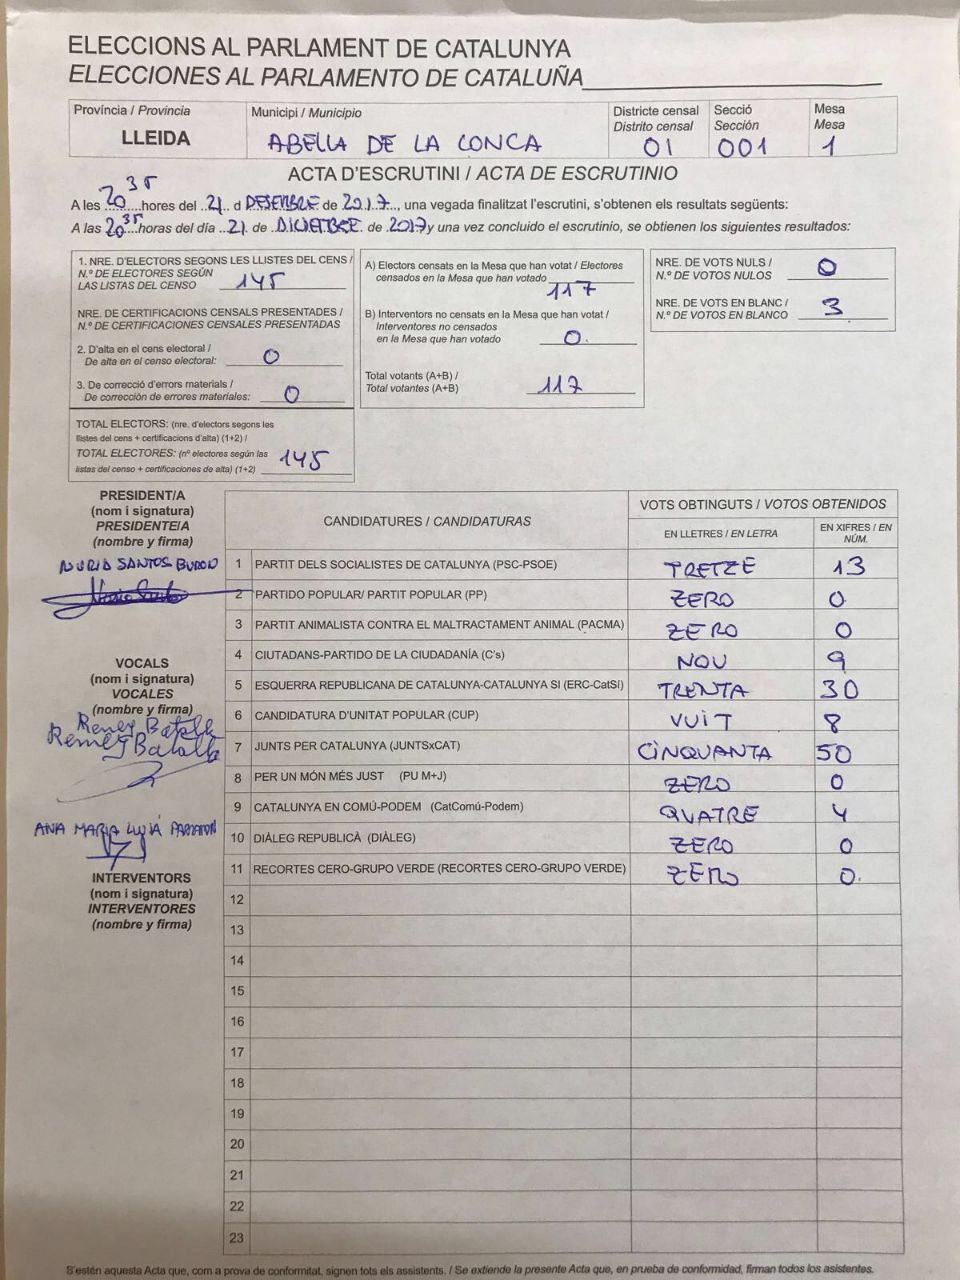 ELECCIONS AL PARLAMENT DE CATALUNYA
ELECCIONES AL PARLAMENTO DE CATALUÑA
Província / Provincia
LLEIDA
Municipi / Municipio
ABELLA DE LA CONCA
Districte censal
Distrito censal
01
Secció
Sección
001
Mesa
Mesa
1
ACTA D'ESCRUTINI / ACTA DE ESCRUTINIO
A les 20 35 hores del 21 d DESEMBRE de 2017, una vegada finalitzat l'escrutini, s'obtenen els resultats següents:
A las 20 35 horas del día 21 de DICIEMBRE de 2017 y una vez concluido el escrutinio, se obtienen los siguientes resultados:
1. NRE. D'ELECTORS SEGONS LES LLISTES DEL CENS /
N.º DE ELECTORES SEGÚN
LAS LISTAS DEL CENSO 145
NRE. DE CERTIFICACIONS CENSALS PRESENTADES /
N.º DE CERTIFICACIONES CENSALES PRESENTADAS
2. D'alta en el cens electoral /
De alta en el censo electoral: 0
3. De correcció d'errors materials /
De corrección de errores materiales: 0
TOTAL ELECTORS: (nre. d'electors segons les
llistes del cens + certificacions d'alta) (1+2) /
TOTAL ELECTORES: (nº electores según las
listas del censo + certificaciones de alta) (1+2) 145
A) Electors censats en la Mesa que han votat / Electores
censados en la Mesa que han votado 117
B) Interventors no censats en la Mesa que han votat /
Interventores no censados
en la Mesa que han votado 0.
Total votants (A+B) /
Total votantes (A+B) 117
NRE. DE VOTS NULS /
N.º DE VOTOS NULOS 0
NRE. DE VOTS EN BLANC /
N.º DE VOTOS EN BLANCO 3
PRESIDENT/A
(nom i signatura)
PRESIDENTE/A
(nombre y firma)
NURIA SANTOS
VOCALS
(nom i signatura)
VOCALES
(nombre y firma)
Remey Batalla
Remey Batalla
ANA MARIA
INTERVENTORS
(nom i signatura)
INTERVENTORES
(nombre y firma)
CANDIDATURES / CANDIDATURAS
VOTS OBTINGUTS / VOTOS OBTENIDOS
EN LLETRES / EN LETRA
EN XIFRES / EN NÚM.
1 PARTIT DELS SOCIALISTES DE CATALUNYA (PSC-PSOE) TRETZE 13
2 PARTIDO POPULAR/ PARTIT POPULAR (PP) ZERO 0
3 PARTIT ANIMALISTA CONTRA EL MALTRACTAMENT ANIMAL (PACMA) ZERO 0
4 CIUTADANS-PARTIDO DE LA CIUDADANÍA (C's) NOU 9
5 ESQUERRA REPUBLICANA DE CATALUNYA-CATALUNYA SI (ERC-CatSí) TRENTA 30
6 CANDIDATURA D'UNITAT POPULAR (CUP) VUIT 8
7 JUNTS PER CATALUNYA (JUNTSxCAT) CINQUANTA 50
8 PER UN MÓN MÉS JUST (PU M+J) ZERO 0
9 CATALUNYA EN COMÚ-PODEM (CatComú-Podem) QUATRE 4
10 DIÀLEG REPUBLICÀ (DIÀLEG) ZERO 0
11 RECORTES CERO-GRUPO VERDE (RECORTES CERO-GRUPO VERDE) ZERO 0.
12
13
14
15
16
17
18
19
20
21
22
23
S'estén aquesta Acta que, com a prova de conformitat, signen tots els assistents. / Se extiende la presente Acta que, en prueba de conformidad, firman todos los asistentes.